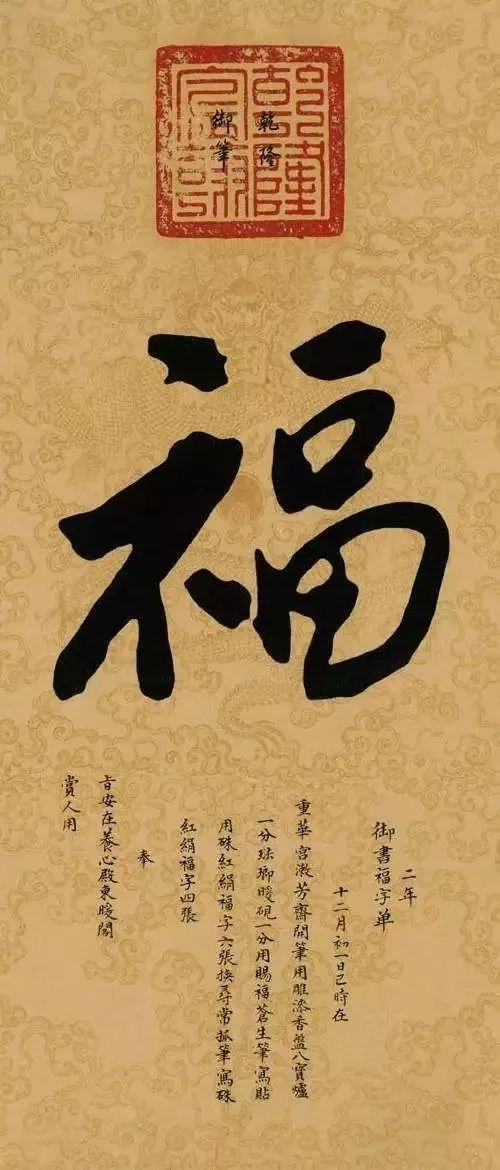 乾隆
宸翰
乾隆
御筆
福
二年
御書福字單
十二月初一日巳時在
重華宮漱芳齋開筆用雕漆香盤八寶爐
一分琺瑯暖硯一分用賜福蒼生筆寫貼
用硃紅絹福字六張換尋常抓筆寫硃
紅絹福字四張
奉
旨安在養心殿東暖閣
賞人用